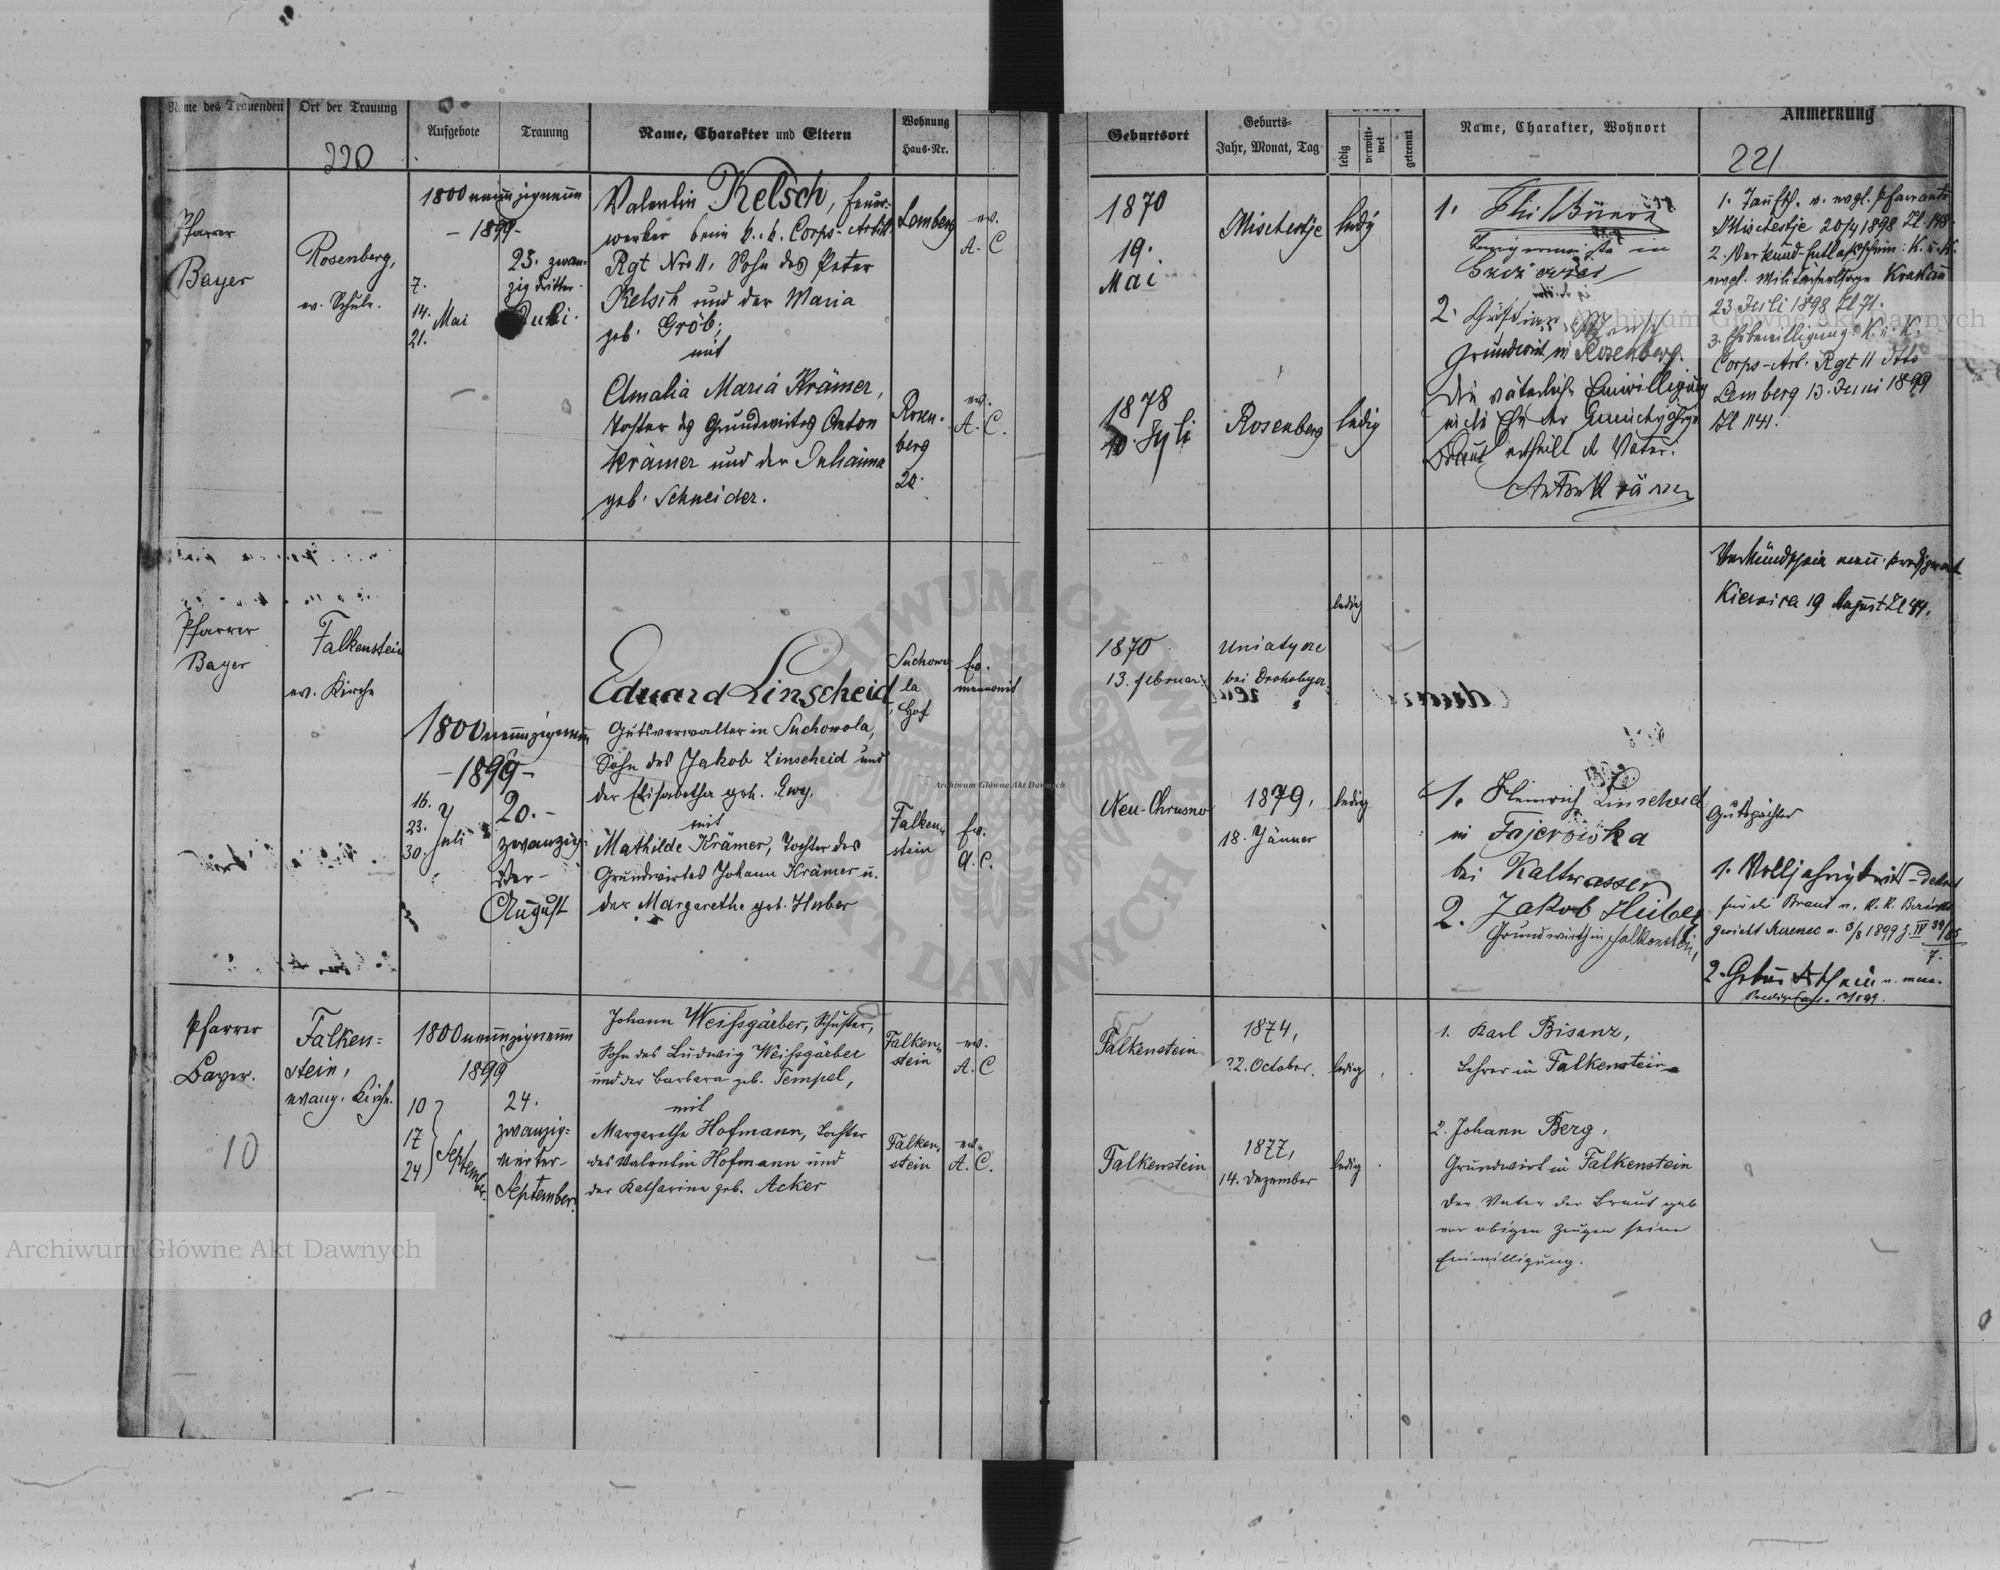 Name des Trauenden
Ort der Trauung
Aufgebote
Trauung
Name, Charakter und Eltern
Wohnung
Haus-Nr.
220
Pfarrer
Bayer
Rosenberg,
ev. Schule.
1800neunzigneun
- 1899 -
7.
14. Mai
21.
23. zwan-
zigdritter-
Juli.
Valentin Kelsch, Feuer-
werker beim k. k. Corps-Artill.
Rgt Nro 11, Sohn des Peter
Kelsch und der Maria
geb. Gröb;
mit
Amalia Maria Krämer,
Tochter des Grundwirtes Anton
Krämer und der Julianna
geb. Schneider.
Lemberg
ev.
A. C
Rosen-
berg
20.
ev.
A. C.
Pfarrer
Bayer
Falkenstein
ev. Kirche
1800neunzigneun
- 1899 -
16.
23. Juli
30.
20. -
zwanzig-
ster -
August
Eduard Linscheid
Gutsverwalter in Suchowola,
Sohn des Jakob Linscheid und
der Elisabetha geb. Ewy.
mit
Mathilde Krämer, Tochter des
Grundwirtes Johann Krämer u.
der Margarethe geb. Huber
Suchowo-
la
Hof
Ev.
mennonit
Falken-
stein
Ev.
A. C.
Pfarrer
Bayer.
10
Falken=
stein,
evang. Kirche.
1800neunzigneun
1899
10
17
24
September.
24.
zwanzig=
vierter-
September.
Johann Weissgärber, Schuster,
Sohn des Ludwig Weissgärber
und der Barbara geb. Tempel,
mit
Margarethe Hofmann, Tochter
des Valentin Hofmann und
der Katharina geb. Acker
Falken-
stein
ev.
A. C
Falken-
stein
ev.
A. C.
Geburtsort
Geburts-
Jahr, Monat, Tag
ledig
verwitt-
wet
getrennt
Name, Charakter, Wohnort
Anmerkung
221
1870
19.
Mai
Mischestje
ledig
1.
2.
Grundwirt in Rosenberg.
Die väterliche Einwilligung
Braut ertheilt der Vater:
Anton Krämer
1. Taufsch. v. evgl. Pfarramte
Mischestje 20/4 1898 Zl. 148.
2. Verkünd-Entlaßschein: K. u. K.
evgl. Militärseelsorge Krakau
23 Juli 1898 Zl 71.
3. Ehebewilligung K. u. K.
Corps-Art. Rgt 11 dtto
Lemberg 13. Juni 1899
Zl 1141.
1878
10. July
Rosenberg
ledig
Kiernica 19 August Zl 44.
1870
13. Februar
Uniatycze
bei Drohobycz
ledig
Neu-Chrusno
1879,
18. Jänner
ledig
1. Heinrich Linscheid
in
bei Kaltwasser
Gutspächter
2. Jakob Huber
Grundwirth in Falkenstein,
1. Volljährigkeits-Dekret
für die Braut v. K. K. Bezirks
2. Geburtsschein v. men.
Falkenstein
1874,
22. October.
ledig
1. Karl Bisanz,
Lehrer in Falkenstein
Falkenstein
1877,
14. Dezember
ledig
2. Johann Berg,
Grundwirt in Falkenstein
Der Vater der Braut gab
vor obigen Zeugen seine
Einwilligung.
Archiwum Główne Akt Dawnych
Archiwum Główne Akt Dawnych
Archiwum Główne Akt Dawnych